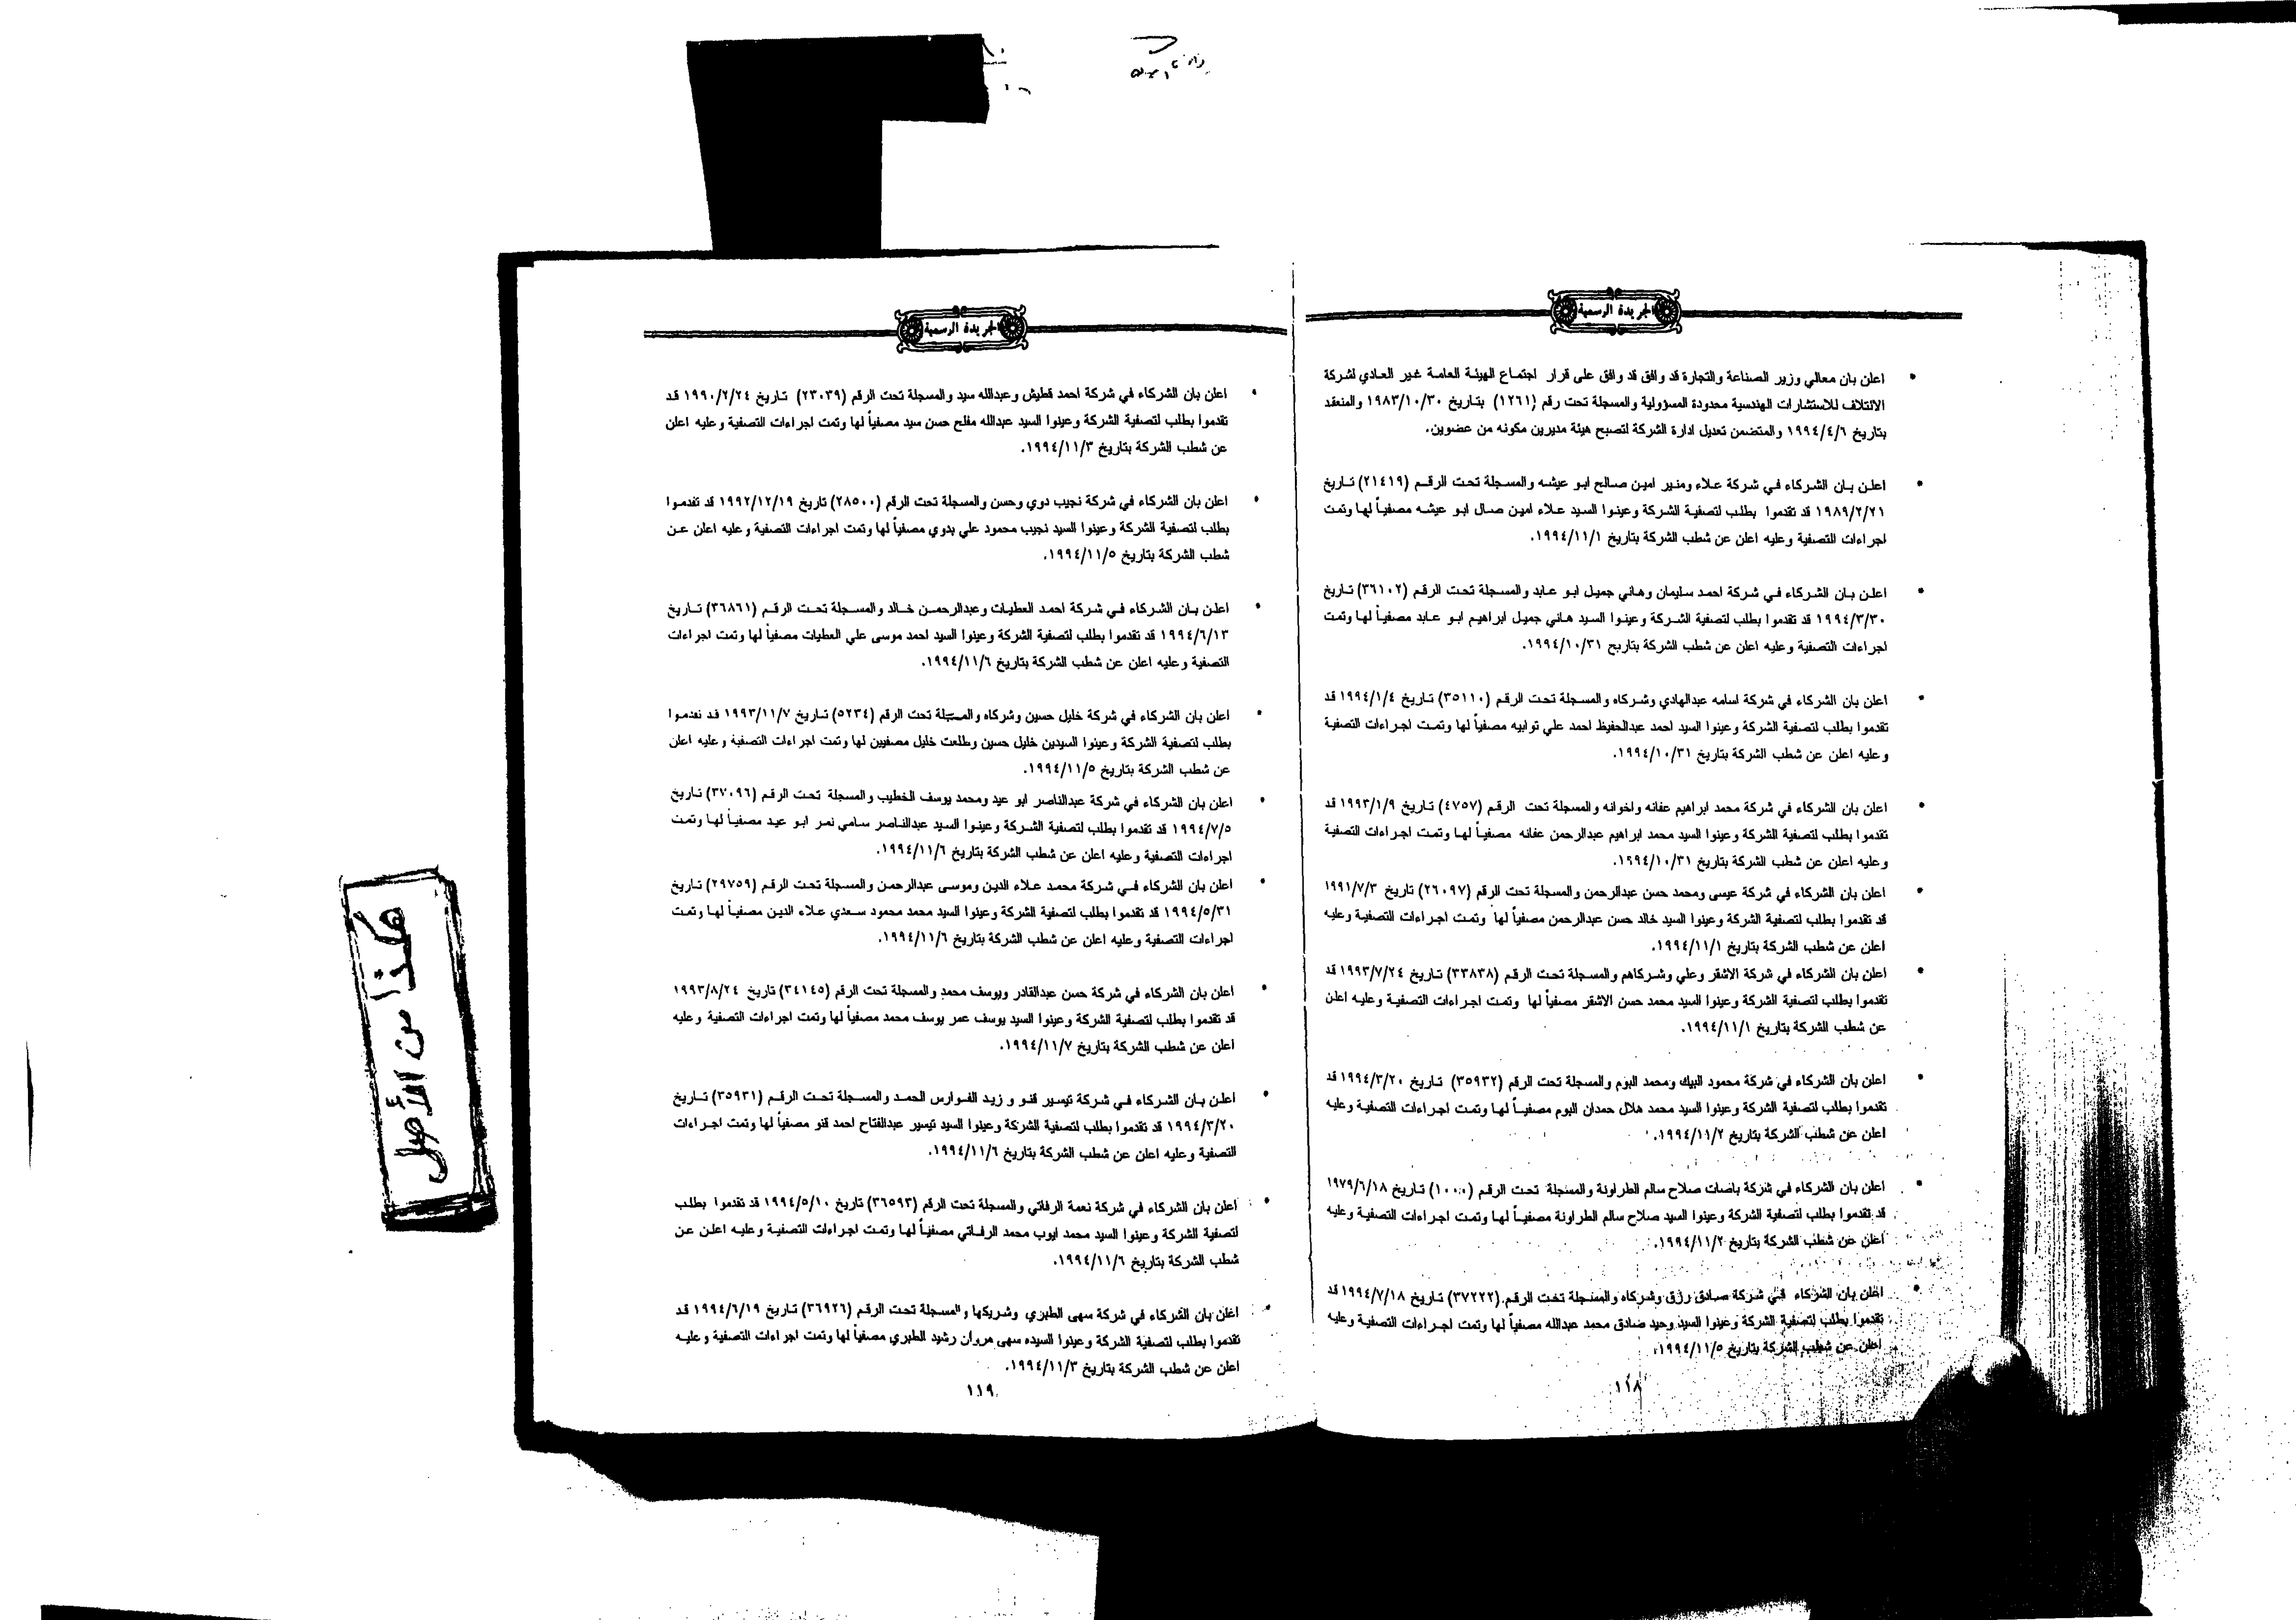 الجريدة الرسمية
• اعلن بان معالي وزير الصناعة والتجارة قد وافق قد وافق على قرار اجتماع الهيئة العامة غير العادي لشركة
الائتلاف للاستشارات الهندسية محدودة المسؤولية والمسجلة تحت رقم (١٢٦١) بتاريخ ١٩٨٣/١٠/٣٠ والمنعقد
بتاريخ ١٩٩٤/٤/٦ والمتضمن تعديل ادارة الشركة لتصبح هيئة مديرين مكونه من عضوين.
• اعلن بان الشركاء في شركة علاء ومنير امين صالح ابو عيشه والمسجلة تحت الرقم (٢١٤١٩) تاريخ
١٩٨٩/٢/٢١ قد تقدموا بطلب لتصفية الشركة وعينوا السيد علاء امين صال ابو عيشه مصفياً لها وتمت
اجراءات التصفية وعليه اعلن عن شطب الشركة بتاريخ ١٩٩٤/١١/١.
• اعلن بان الشركاء في شركة احمد سليمان وهاني جميل ابو عابد والمسجلة تحت الرقم (٣٦١٠٢) تاريخ
١٩٩٤/٣/٣٠ قد تقدموا بطلب لتصفية الشركة وعينوا السيد هاني جميل ابراهيم ابو عابد مصفياً لها وتمت
اجراءات التصفية وعليه اعلن عن شطب الشركة بتاريخ ١٩٩٤/١٠/٣١.
• اعلن بان الشركاء في شركة اسامه عبدالهادي وشركاه والمسجلة تحت الرقم (٣٥١١٠) تاريخ ١٩٩٤/١/٤ قد
تقدموا بطلب لتصفية الشركة وعينوا السيد احمد عبدالحفيظ احمد علي توابيه مصفياً لها وتمت اجراءات التصفية
وعليه اعلن عن شطب الشركة بتاريخ ١٩٩٤/١٠/٣١.
• اعلن بان الشركاء في شركة محمد ابراهيم عفانه واخوانه والمسجلة تحت الرقم (٤٧٥٧) تاريخ ١٩٩٣/١/٩ قد
تقدموا بطلب لتصفية الشركة وعينوا السيد محمد ابراهيم عبدالرحمن عفانه مصفياً لها وتمت اجراءات التصفية
وعليه اعلن عن شطب الشركة بتاريخ ١٩٩٤/١٠/٣١.
• اعلن بان الشركاء في شركة عيسى ومحمد حسن عبدالرحمن والمسجلة تحت الرقم (٢٦٠٩٧) تاريخ ١٩٩١/٧/٣
قد تقدموا بطلب لتصفية الشركة وعينوا السيد خالد حسن عبدالرحمن مصفياً لها وتمت اجراءات التصفية وعليه
اعلن عن شطب الشركة بتاريخ ١٩٩٤/١١/١.
• اعلن بان الشركاء في شركة الاشقر وعلي وشركاهم والمسجلة تحت الرقم (٣٣٨٣٨) تاريخ ١٩٩٣/٧/٢٤ قد
تقدموا بطلب لتصفية الشركة وعينوا السيد محمد حسن الاشقر مصفياً لها وتمت اجراءات التصفية وعليه اعلن
عن شطب الشركة بتاريخ ١٩٩٤/١١/١.
• اعلن بان الشركاء في شركة محمود البيك ومحمد البوم والمسجلة تحت الرقم (٣٥٩٣٢) تاريخ ١٩٩٤/٣/٢٠ قد
تقدموا بطلب لتصفية الشركة وعينوا السيد محمد هلال حمدان البوم مصفياً لها وتمت اجراءات التصفية وعليه
اعلن عن شطب الشركة بتاريخ ١٩٩٤/١١/٢.
• اعلن بان الشركاء في شركة باصات صلاح سالم الطراونة والمسجلة تحت الرقم (١٠٠٠) تاريخ ١٩٧٩/٦/١٨
قد تقدموا بطلب لتصفية الشركة وعينوا السيد صلاح سالم الطراونة مصفياً لها وتمت اجراءات التصفية وعليه
اعلن عن شطب الشركة بتاريخ ١٩٩٤/١١/٢.
• اعلن بان الشركاء في شركة صادق رزق وشركاه والمسجلة تحت الرقم (٣٧٢٢٢) تاريخ ١٩٩٤/٧/١٨ قد
تقدموا بطلب لتصفية الشركة وعينوا السيد وحيد صادق محمد عبدالله مصفياً لها وتمت اجراءات التصفية وعليه
اعلن عن شطب الشركة بتاريخ ١٩٩٤/١١/٥.
١١٨
الجريدة الرسمية
• اعلن بان الشركاء في شركة احمد قطيش وعبدالله سيد والمسجلة تحت الرقم (٢٣٠٣٩) تاريخ ١٩٩٠/٢/٢٤ قد
تقدموا بطلب لتصفية الشركة وعينوا السيد عبدالله مفلح حسن سيد مصفياً لها وتمت اجراءات التصفية وعليه اعلن
عن شطب الشركة بتاريخ ١٩٩٤/١١/٣.
• اعلن بان الشركاء في شركة نجيب دوي وحسن والمسجلة تحت الرقم (٢٨٥٠٠) تاريخ ١٩٩٢/١٢/١٩ قد تقدموا
بطلب لتصفية الشركة وعينوا السيد نجيب محمود علي بدوي مصفياً لها وتمت اجراءات التصفية وعليه اعلن عن
شطب الشركة بتاريخ ١٩٩٤/١١/٥.
• اعلن بان الشركاء في شركة احمد العطيات وعبدالرحمن خالد والمسجلة تحت الرقم (٣٦٨٦١) تاريخ
١٩٩٤/٦/١٣ قد تقدموا بطلب لتصفية الشركة وعينوا السيد احمد موسى علي العطيات مصفياً لها وتمت اجراءات
التصفية وعليه اعلن عن شطب الشركة بتاريخ ١٩٩٤/١١/٦.
• اعلن بان الشركاء في شركة خليل حسين وشركاه والمسجلة تحت الرقم (٥٢٣٤) تاريخ ١٩٩٣/١١/٧ قد تقدموا
بطلب لتصفية الشركة وعينوا السيدين خليل حسين وطلعت خليل مصفيين لها وتمت اجراءات التصفية وعليه اعلن
عن شطب الشركة بتاريخ ١٩٩٤/١١/٥.
• اعلن بان الشركاء في شركة عبدالناصر ابو عيد ومحمد يوسف الخطيب والمسجلة تحت الرقم (٣٧٠٩٦) تاريخ
١٩٩٤/٧/٥ قد تقدموا بطلب لتصفية الشركة وعينوا السيد عبدالناصر سامي نمر ابو عيد مصفياً لها وتمت
اجراءات التصفية وعليه اعلن عن شطب الشركة بتاريخ ١٩٩٤/١١/٦.
• اعلن بان الشركاء في شركة محمد علاء الدين وموسى عبدالرحمن والمسجلة تحت الرقم (٢٩٧٥٩) تاريخ
١٩٩٤/٥/٣١ قد تقدموا بطلب لتصفية الشركة وعينوا السيد محمد محمود سعدي علاء الدين مصفياً لها وتمت
اجراءات التصفية وعليه اعلن عن شطب الشركة بتاريخ ١٩٩٤/١١/٦.
• اعلن بان الشركاء في شركة حسن عبدالقادر ويوسف محمد والمسجلة تحت الرقم (٣٤١٤٥) تاريخ ١٩٩٣/٨/٢٤
قد تقدموا بطلب لتصفية الشركة وعينوا السيد يوسف عمر يوسف محمد مصفياً لها وتمت اجراءات التصفية وعليه
اعلن عن شطب الشركة بتاريخ ١٩٩٤/١١/٧.
• اعلن بان الشركاء في شركة تيسير قنو و زيد الفوارس الحمد والمسجلة تحت الرقم (٣٥٩٣١) تاريخ
١٩٩٤/٣/٢٠ قد تقدموا بطلب لتصفية الشركة وعينوا السيد تيسير عبدالفتاح احمد قنو مصفياً لها وتمت اجراءات
التصفية وعليه اعلن عن شطب الشركة بتاريخ ١٩٩٤/١١/٦.
• اعلن بان الشركاء في شركة نعمة الرفاتي والمسجلة تحت الرقم (٣٦٥٩٣) تاريخ ١٩٩٤/٥/١٠ قد تقدموا بطلب
لتصفية الشركة وعينوا السيد محمد ايوب محمد الرفاتي مصفياً لها وتمت اجراءات التصفية وعليه اعلن عن
شطب الشركة بتاريخ ١٩٩٤/١١/٦.
• اعلن بان الشركاء في شركة سهى الطبري وشريكها والمسجلة تحت الرقم (٣٦٩٢٦) تاريخ ١٩٩٤/٦/١٩ قد
تقدموا بطلب لتصفية الشركة وعينوا السيده سهى مروان رشيد الطبري مصفياً لها وتمت اجراءات التصفية وعليه
اعلن عن شطب الشركة بتاريخ ١٩٩٤/١١/٣.
١١٩
هكذا من الأصل